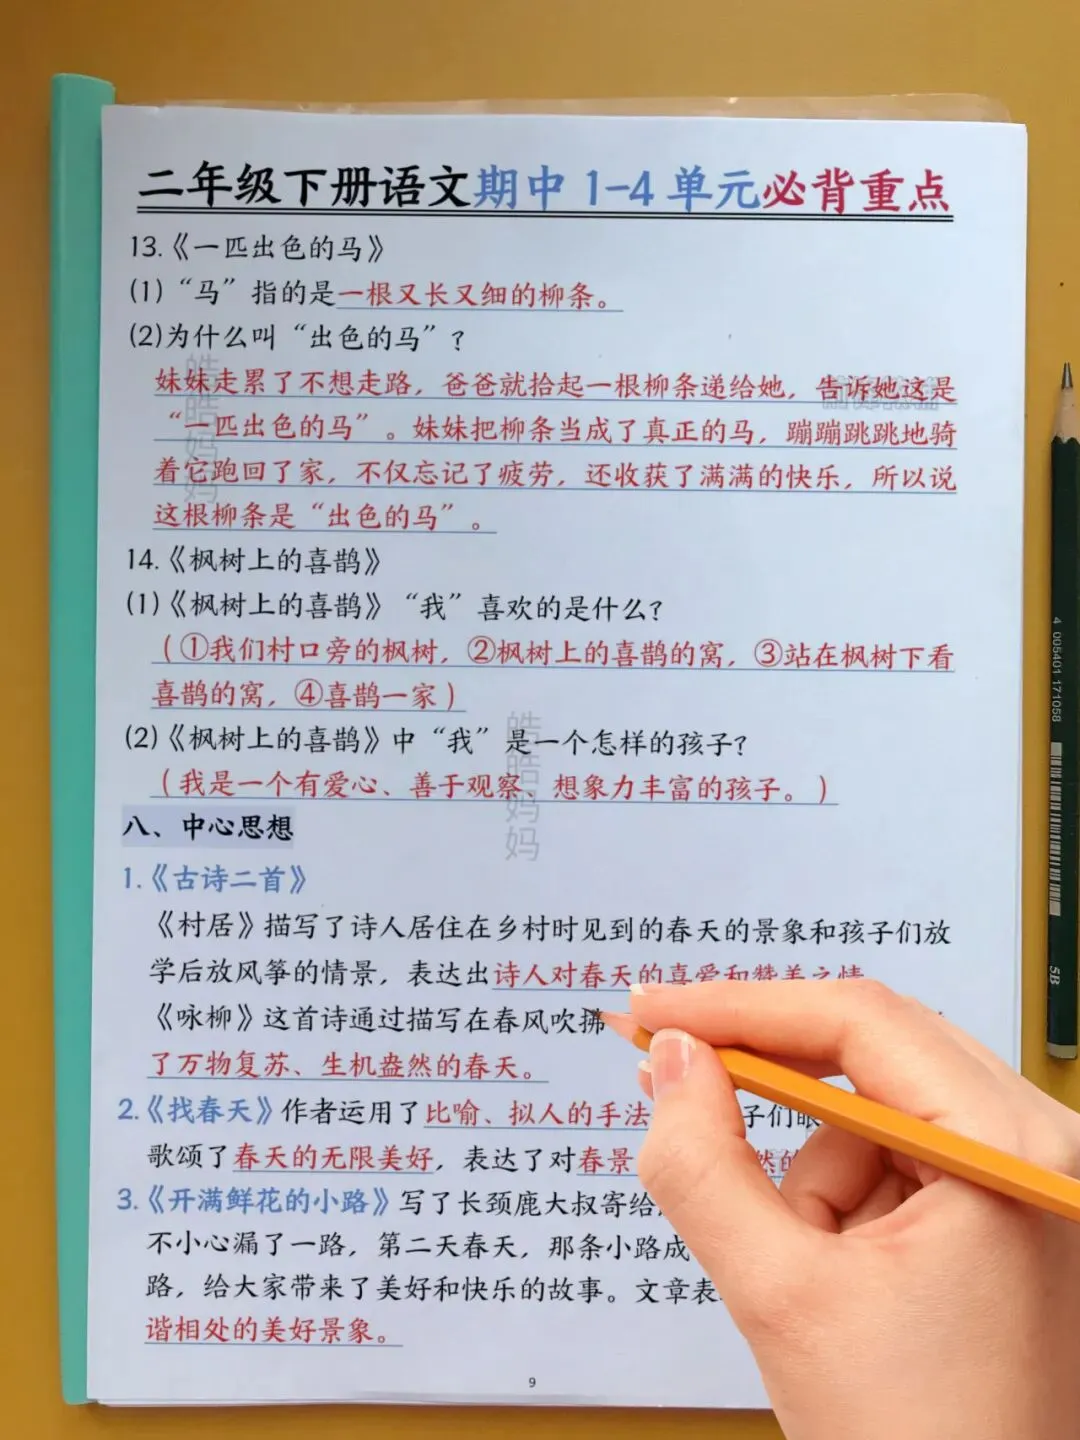 二年级下册语文期中1-4单元必背重点
13.《一匹出色的马》
(1)“马”指的是一根又长又细的柳条。
(2)为什么叫“出色的马”？
妹妹走累了不想走路，爸爸就拾起一根柳条递给她，告诉她这是
“一匹出色的马”。妹妹把柳条当成了真正的马，蹦蹦跳跳地骑
着它跑回了家，不仅忘记了疲劳，还收获了满满的快乐，所以说
这根柳条是“出色的马”。
14.《枫树上的喜鹊》
(1)《枫树上的喜鹊》“我”喜欢的是什么？
（①我们村口旁的枫树，②枫树上的喜鹊的窝，③站在枫树下看
喜鹊的窝，④喜鹊一家）
(2)《枫树上的喜鹊》中“我”是一个怎样的孩子？
（我是一个有爱心、善于观察、想象力丰富的孩子。）
皓皓妈妈
皓皓妈妈
八、中心思想
1.《古诗二首》
《村居》描写了诗人居住在乡村时见到的春天的景象和孩子们放
学后放风筝的情景，表达出诗人对春天的喜爱和赞美之情
《咏柳》这首诗通过描写在春风吹拂
了万物复苏、生机盎然的春天。
2.《找春天》作者运用了比喻、拟人的手法 子们眼
歌颂了春天的无限美好，表达了对春景 然的
3.《开满鲜花的小路》写了长颈鹿大叔寄给
不小心漏了一路，第二天春天，那条小路成
路，给大家带来了美好和快乐的故事。文章表
谐相处的美好景象。
9
4 005401 171058
5B